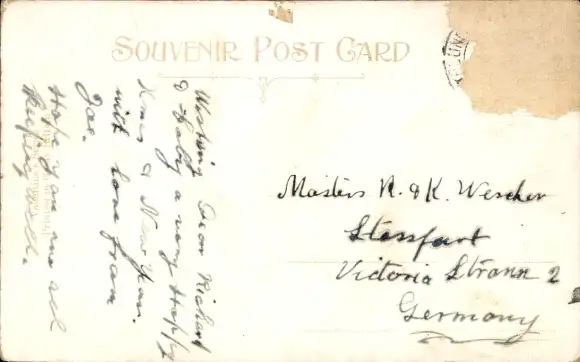 SOUVENIR POST CARD
Wishing Dear Richard
& Baby a very Happy
Xmas & New Year.
with love from
Joe.
Hope you are all
keeping well.
Masters R. & K. Wescher
Stassfurt
Victoria Strasse 2
Germany